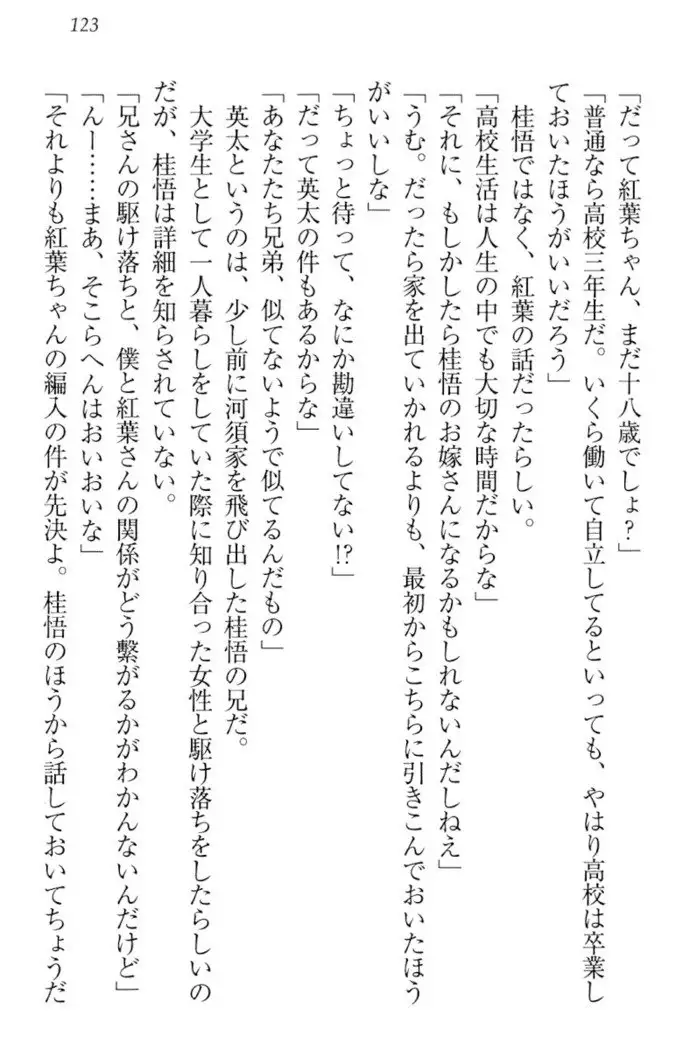 123
「だって紅葉ちゃん、まだ十八歳でしょ？」
「普通なら高校三年生だ。いくら働いて自立してるといっても、やはり高校は卒業し
ておいたほうがいいだろう」
桂悟ではなく、紅葉の話だったらしい。
「高校生活は人生の中でも大切な時間だからな」
「それに、もしかしたら桂悟のお嫁さんになるかもしれないんだしねえ」
「うむ。だったら家を出ていかれるよりも、最初からこちらに引きこんでおいたほう
がいいしな」
「ちょっと待って、なにか勘違いしてない!?」
「だって英太の件もあるからな」
「あなたたち兄弟、似てないようで似てるんだもの」
英太というのは、少し前に河須家を飛び出した桂悟の兄だ。
大学生として一人暮らしをしていた際に知り合った女性と駆け落ちをしたらしいの
だが、桂悟は詳細を知らされていない。
「兄さんの駆け落ちと、僕と紅葉さんの関係がどう繋がるかがわかんないんだけど」
「んー……まあ、そこらへんはおいおいな」
「それよりも紅葉ちゃんの編入の件が先決よ。桂悟のほうから話しておいてちょうだ